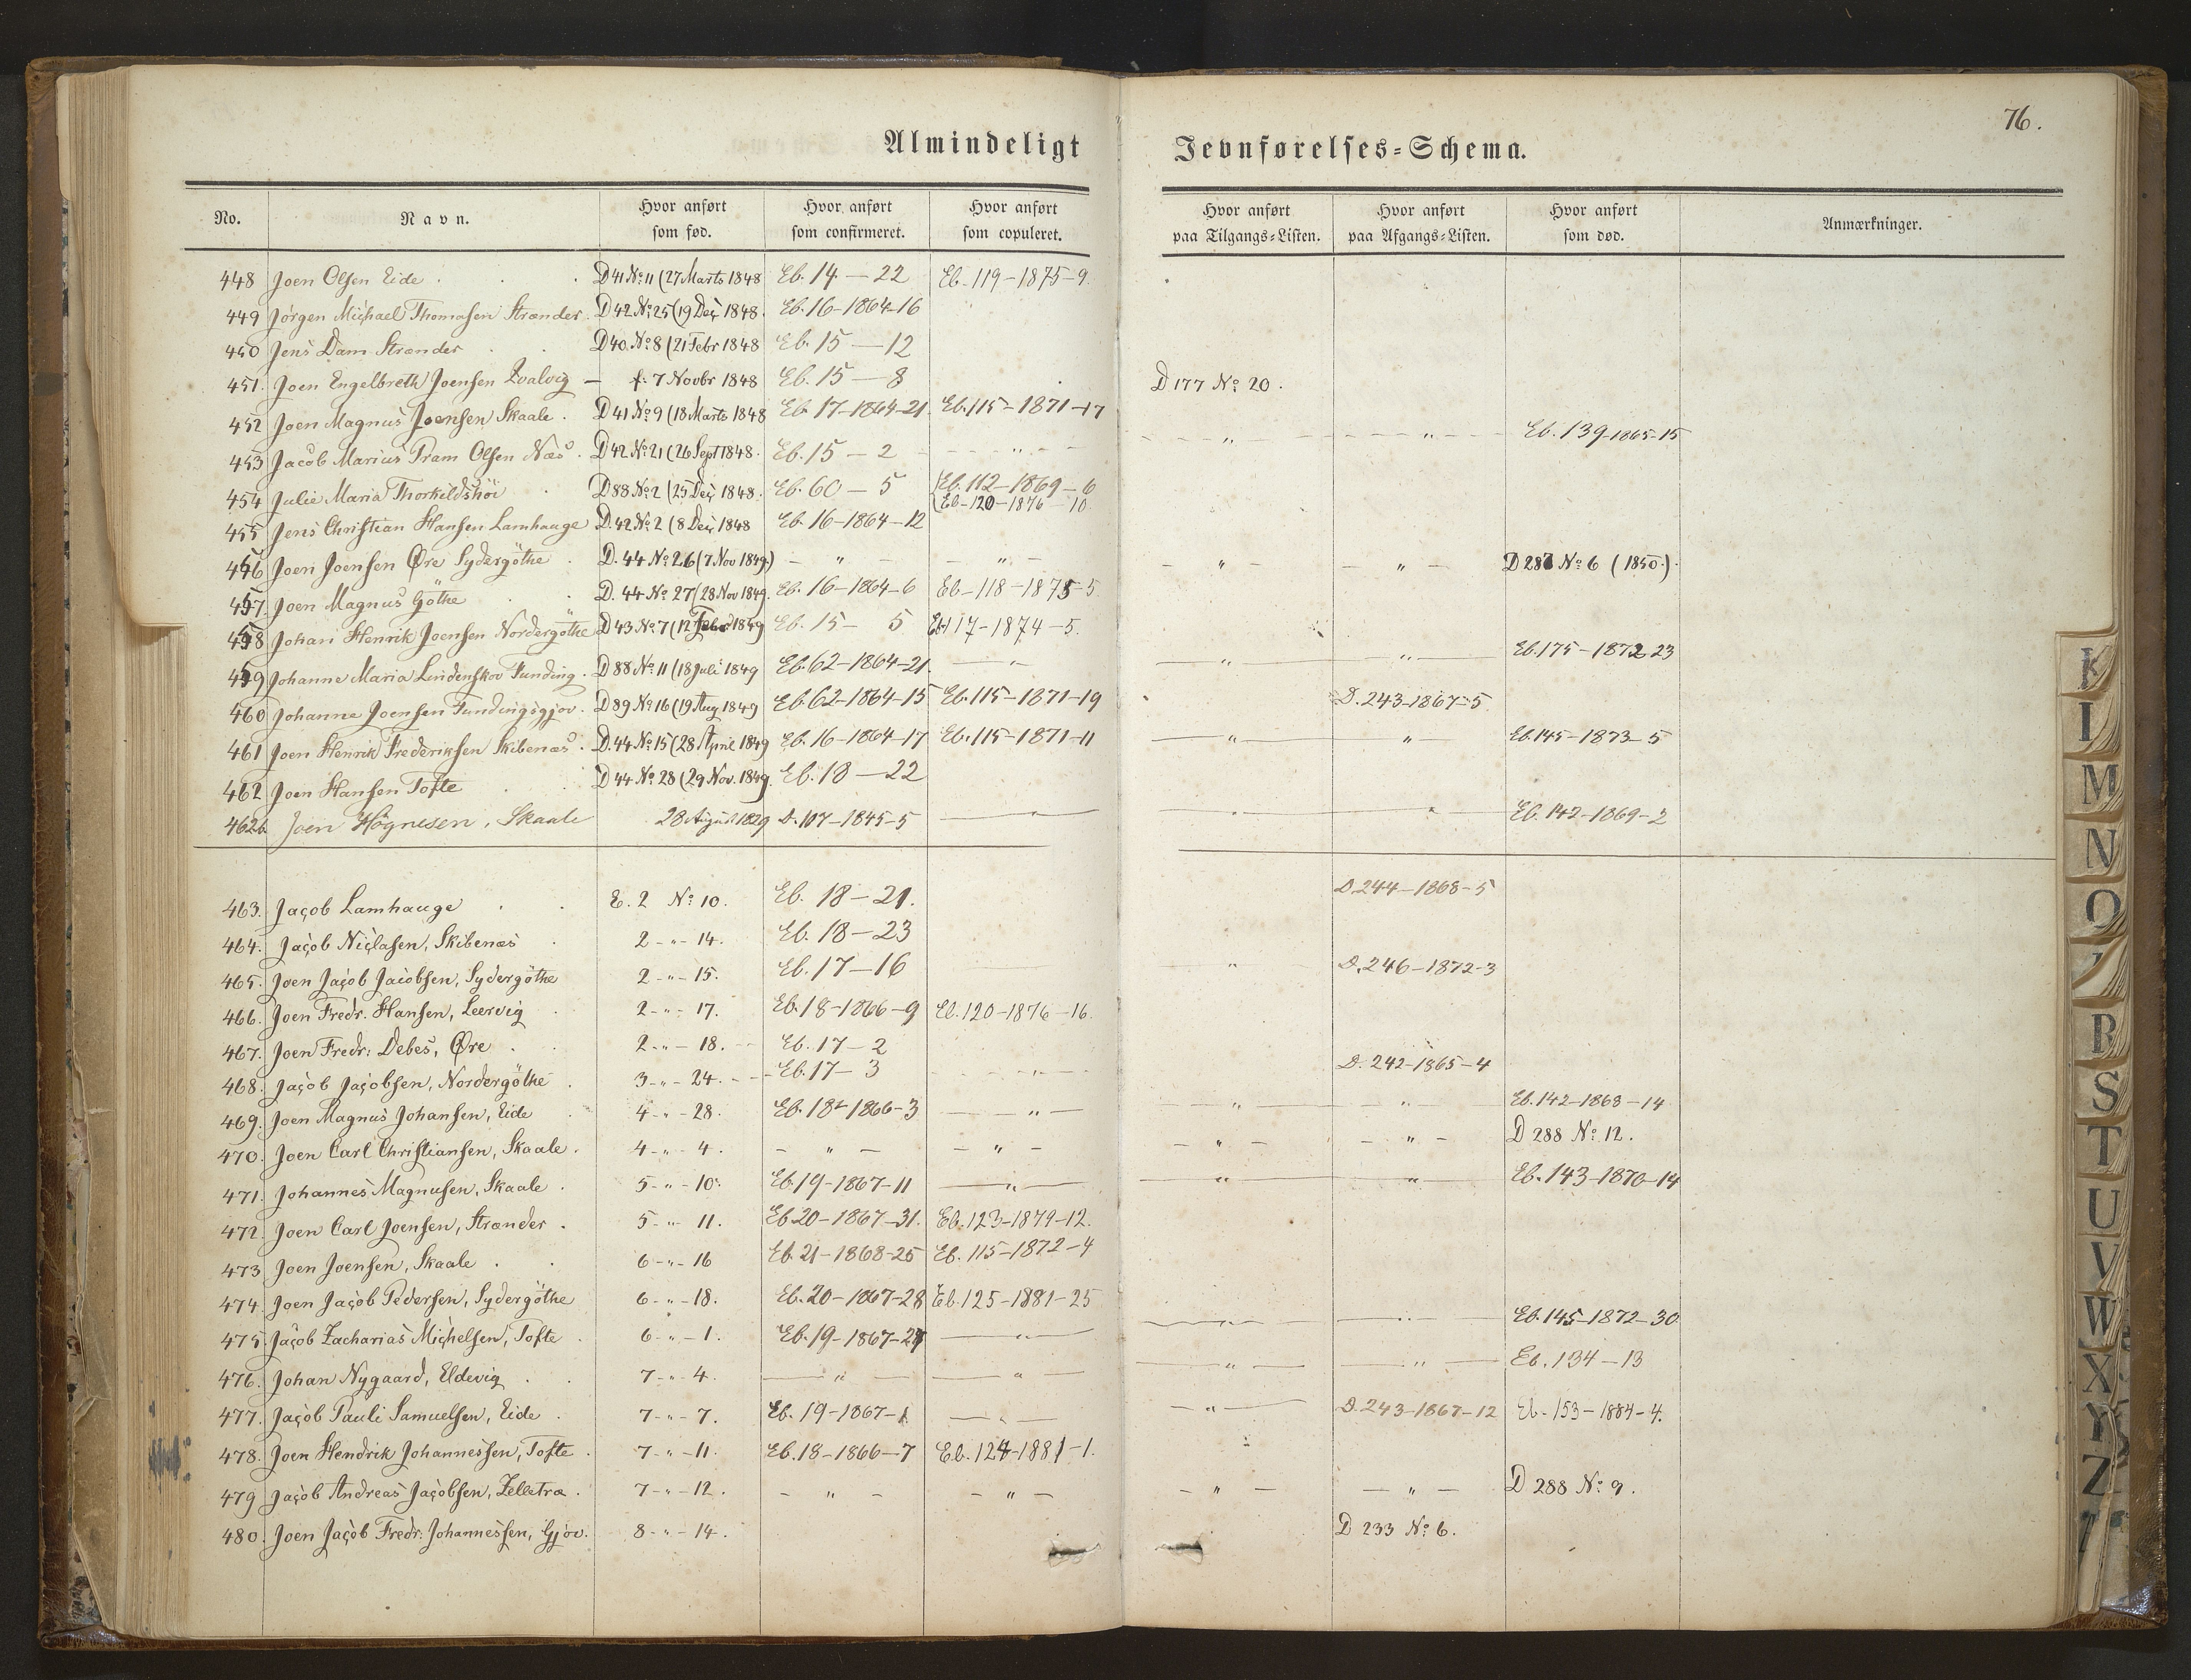 76.
Almindeligt Jevnførelses=Schema.
No. Navn. Hvor anført som fød. Hvor anført som confirmeret. Hvor anført som copuleret. Hvor anført paa Tilgangs=Listen. Hvor anført paa Afgangs=Listen. Hvor anført som død. Anmærkninger.
448 Joen Olsen Eide . . . D41 No 11 (27 Marts 1848 Eb. 14 — 22 Eb. 119-1875-9
449 Jørgen Michael Thomasen Strænder. D42 No 25 (19 Dec 1848. Eb. 16-1864-16
450 Jens Dam Strænder . . D40 No 8 (21 Febr 1848 Eb. 15 — 12
451. Joen Engelbreth Joensen Qvalvig — f: 7 Novbr 1848 Eb. 15 — 8 D 177 No 20.
452 Joen Magnus Joensen Skaale. D41 No 9 (18 Marts 1848 Eb. 17-1864-21. Eb. 115-1871-17
453 Jacob Marius Pram Olsen Næs. D42 No 21 (26 Sept 1848. Eb. 15 — 2 - - " - - - " - - - " - Eb. 139-1865-15
454 Julie Maria Thorkildshøi . D88 No 2 (25 Dec 1848. Eb. 60 — 5 (Eb. 112-1869-6
(Eb-120-1876-10.
455 Jens Christian Hansen Lamhauge D.42 No 2 (8 Dec 1848 Eb. 16-1864-12
456 Joen Joensen Øre Sydergöthe . D. 44 No 26 (7 Nov 1849.) — " — — " — — " — — " — D 287 No 6 (1850.).
457. Joen Magnus Göthe . . D. 44 No 27 (28 Nov 1849. Eb. 16-1864-6 Eb-118-1875-5
458 Johan Henrik Joensen Nordergöthe D43 No 7 (12 Febr 1849 Eb. 15 — 5 Eb 117-1874-5.
459 Johanne Maria Lindenskov Funding. D88 No 11 (18 Juli 1849 Eb. 62-1864-21. — " — — " — — " — Eb. 175-1872 23
460 Johanne Joensen Fundingsgjov. D89 No 16 (19 Aug 1849 Eb. 62-1864-15 Eb. 115-1871-19 D. 243-1867-5
461 Joen Henrik Frederiksen Skibenæs. D.44 No 15 (28 April 1849 Eb. 16-1864-17 Eb. 115-1871-11 — " — — " — Eb. 145-1873-5
462 Joen Hansen Tofte . . D 44 No 28 (29 Nov. 1849. Eb. 18 — 22
462b Joen Högnesen, Skaale 28 August 1829 D. 107-1845-5 — " — — " — — " — Eb. 142-1869-2
463. Jacob Lamhauge . . E. 2 No 10. Eb. 18 — 21. D. 244-1868-5
464. Jacob Niclasen, Skibenæs . 2 - " - 14. Eb. 18 — 23
465. Joen Jacob Jacobsen, Sydergöthe 2 - " - 15. Eb. 17 — 16 — " D. 246-1872-3
466. Joen Fredr. Hansen, Leervig . 2 - " - 17. Eb. 18-1866-9 Eb. 120-1876-16.
467. Joen Fredr: Debes, Øre . . 2 - " - 18. Eb. 17 — 2
468. Jacob Jacobsen, Nordergöthe . 3 - " - 24. Eb. 17 — 3 - - " - - D. 242-1865-4
469. Joen Magnus Johansen, Eide . 4 - " - 28. Eb. 18-1866-3 — " — — " — — " — Eb. 142-1868-14
470. Joen Carl Christiansen, Skaale. 4 - " - 4. — " — — " — — " — — " — D 288 No 12.
471. Johannes Magnusen, Skaale . 5 - " - 10. Eb. 19-1867-11 — " — — " — — " — Eb. 143-1870-14
472. Joen Carl Joensen, Strænder . 5 - " - 11. Eb. 20-1867-31. Eb. 123-1879-12.
473 Joen Joensen, Skaale . . 6 - " - 16 Eb. 21-1868-25 Eb. 115-1872-4
474. Joen Jacob Pedersen, Sydergöthe 6 - " - 18. Eb. 20-1867-28 Eb. 125-1881-25
475. Jacob Zacharias Michelsen, Tofte . 6 - " - 1. Eb. 19-1867-27 — " — — " — — " — Eb. 145-1872-30.
476. Johan Nygaard, Eldevig . . 7 - " - 4. — " — — " — — " — — " — Eb. 134-13
477. Jacob Pauli Samuelsen, Eide . 7 - " - 7. Eb. 19-1867-1 — " — — " — D. 243-1867-12 Eb. 153-1884-4.
478. Joen Hendrik Johannessen, Tofte . 7 - " - 11. Eb. 18-1866-7 Eb. 124-1881-1.
479 Jacob Andreas Jacobsen, Zelletræ . 7 - " - 12. — " — — " — — " — — " — D 288 No 9.
480. Joen Jacob Fredr: Johannessen, Gjov. 8 - " - 14. D 233 No 6.
K
I
M
N
O
R
S
T
U
V
W
X
Y
Z